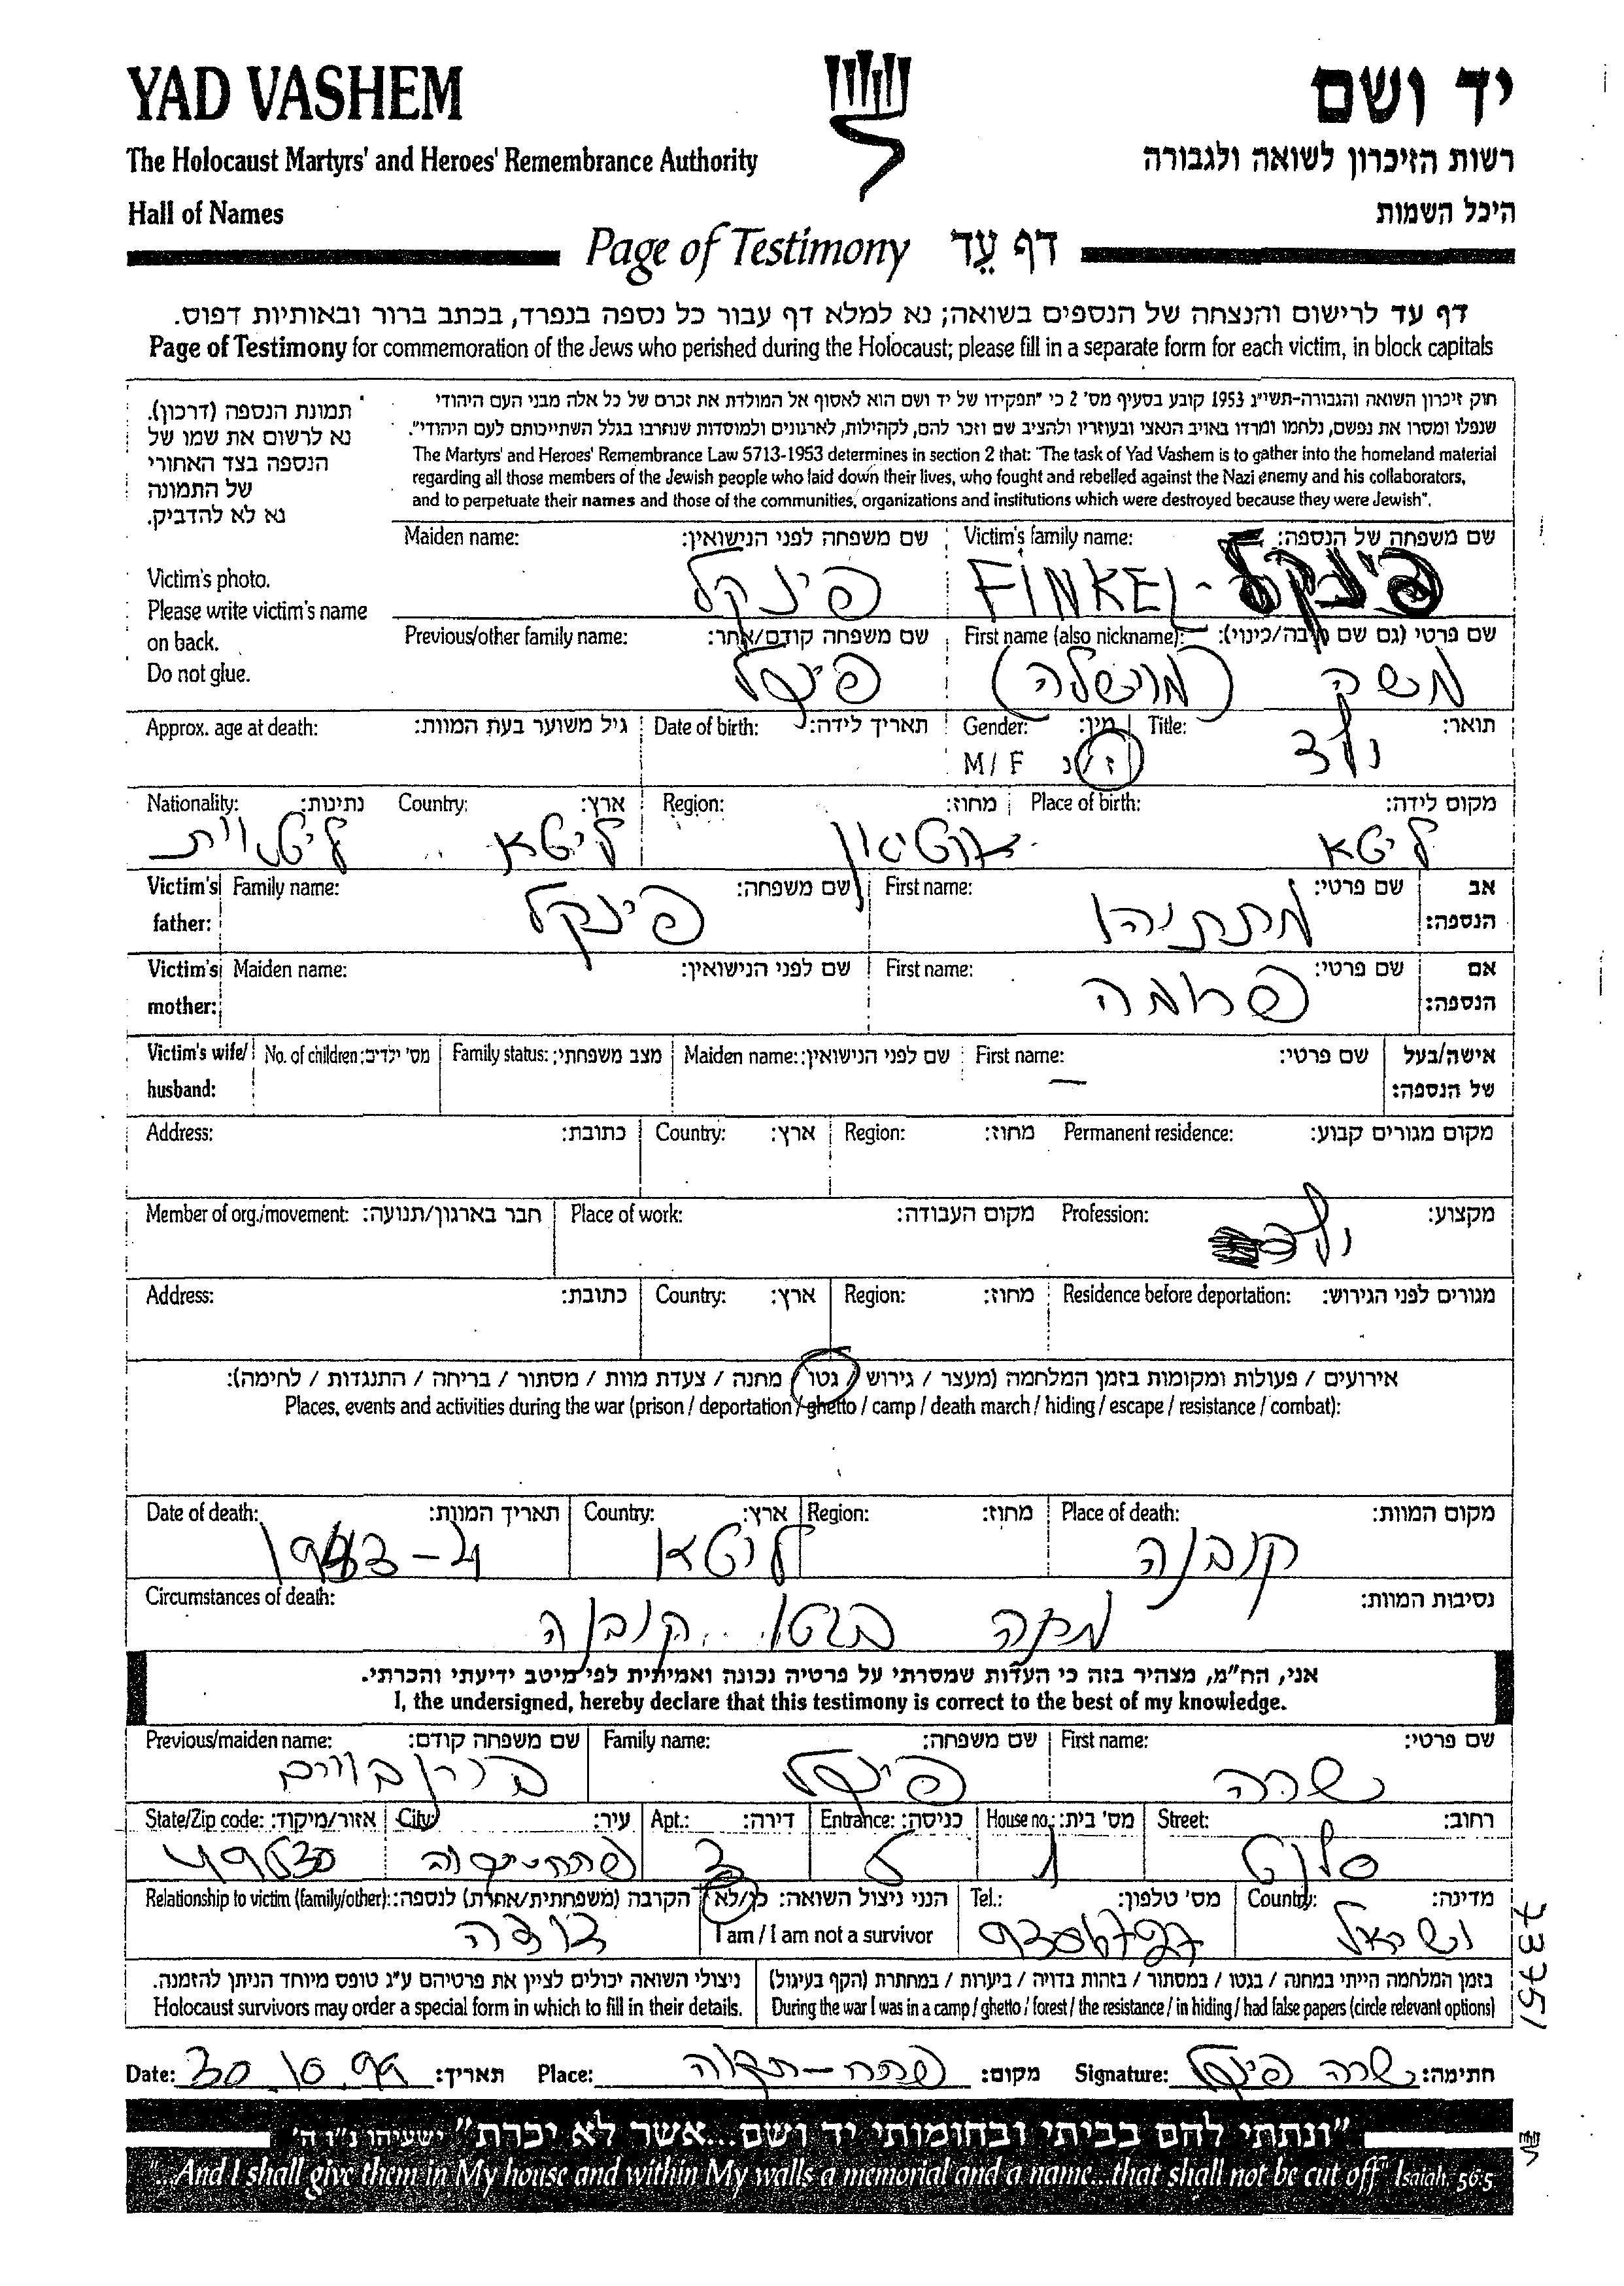 YAD VASHEM
יד ושם
The Holocaust Martyrs' and Heroes' Remembrance Authority
רשות הזיכרון לשואה ולגבורה
Hall of Names
היכל השמות
Page of Testimony דף עֵד
דף עד לרישום והנצחה של הנספים בשואה; נא למלא דף עבור כל נספה בנפרד, בכתב ברור ובאותיות דפוס.
Page of Testimony for commemoration of the Jews who perished during the Holocaust; please fill in a separate form for each victim, in block capitals
תמונת הנספה (דרכון).
נא לרשום את שמו של
הנספה בצד האחורי
של התמונה
נא לא להדביק.
Victim's photo.
Please write victim's name
on back.
Do not glue.
חוק זיכרון השואה והגבורה-תשי"ג 1953 קובע בסעיף מס' 2 כי "תפקידו של יד ושם הוא לאסוף אל המולדת את זכרם של כל אלה מבני העם היהודי
שנפלו ומסרו את נפשם, נלחמו ומרדו באויב הנאצי ובעוזריו ולהציב שם וזכר להם, לקהילות, לארגונים ולמוסדות שנחרבו בגלל השתייכותם לעם היהודי".
The Martyrs' and Heroes' Remembrance Law 5713-1953 determines in section 2 that: "The task of Yad Vashem is to gather into the homeland material
regarding all those members of the Jewish people who laid down their lives, who fought and rebelled against the Nazi enemy and his collaborators,
and to perpetuate their names and those of the communities, organizations and institutions which were destroyed because they were Jewish".
שם משפחה של הנספה: Victim's family name: שם משפחה לפני הנישואין: Maiden name:
פינקל - FINKEL פינקל
שם פרטי (גם שם חיבה/כינוי): First name (also nickname): שם משפחה קודם/אחר: Previous/other family name:
משה (מוישלה) פינקל
תואר: Title: מין: Gender: תאריך לידה: Date of birth: גיל משוער בעת המוות: Approx. age at death:
ילד ז/נ M/F
מקום לידה: Place of birth: מחוז: Region: ארץ: Country: נתינות: Nationality:
ליטא ליטא ליטאית
אב הנספה: שם פרטי: First name: שם משפחה: Family name: Victim's father:
מתתיהו פינקל
אם הנספה: שם פרטי: First name: שם לפני הנישואין: Maiden name: Victim's mother:
פרומה
אישה/בעל של הנספה: שם פרטי: First name: שם לפני הנישואין: Maiden name: מצב משפחתי: Family status: מס' ילדים: No. of children: Victim's wife/ husband:
מקום מגורים קבוע: Permanent residence: מחוז: Region: ארץ: Country: כתובת: Address:
מקצוע: Profession: מקום העבודה: Place of work: חבר בארגון/תנועה: Member of org./movement:
ילד
מגורים לפני הגירוש: Residence before deportation: מחוז: Region: ארץ: Country: כתובת: Address:
אירועים / פעולות ומקומות בזמן המלחמה (מעצר / גירוש / גטו / מחנה / צעדת מוות / מסתור / בריחה / התנגדות / לחימה):
Places, events and activities during the war (prison / deportation / ghetto / camp / death march / hiding / escape / resistance / combat):
מקום המוות: Place of death: מחוז: Region: ארץ: Country: תאריך המוות: Date of death:
קובנה ליטא 1943-4
נסיבות המוות: Circumstances of death:
בגטו קובנה
אני, הח"מ, מצהיר בזה כי העדות שמסרתי על פרטיה נכונה ואמיתית לפי מיטב ידיעתי והכרתי.
I, the undersigned, hereby declare that this testimony is correct to the best of my knowledge.
שם פרטי: First name: שם משפחה: Family name: שם משפחה קודם: Previous/maiden name:
שרה פינקל
רחוב: Street: מס' בית: House no.: כניסה: Entrance: דירה: Apt.: עיר: City: אזור/מיקוד: State/Zip code:
סלנט 1 3 פתח-תקוה 49630
מדינה: Country: מס' טלפון: Tel.: הנני ניצול השואה: כן/לא הקרבה (משפחתית/אחרת) לנספה: Relationship to victim (family/other):
I am / I am not a survivor
ישראל דודה
בזמן המלחמה הייתי במחנה / בגטו / במסתור / בזהות בדויה / ביערות / במחתרת (הקף בעיגול)
During the war I was in a camp / ghetto / forest / the resistance / in hiding / had false papers (circle relevant options)
ניצולי השואה יכולים לציין את פרטיהם ע"ג טופס מיוחד הניתן להזמנה.
Holocaust survivors may order a special form in which to fill in their details.
חתימה: שרה פינקל Signature: מקום: פתח-תקוה Place: תאריך: 30.10.99 Date:
"ונתתי להם בביתי ובחומותי יד ושם...אשר לא יכרת" ישעיהו נ"ו ה'
"...And I shall give them in My house and within My walls a memorial and a name...that shall not be cut off" Isaiah 56:5